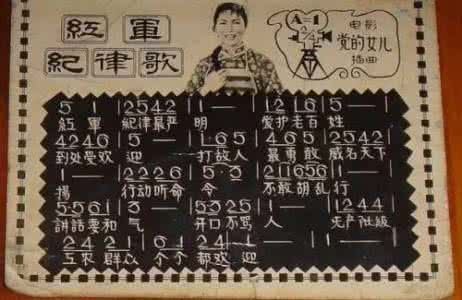 紅軍
紀律歌
A=1 2/4
电影
党的女儿
插曲
5 1 | 2542 | 1 — | 1216 | 5 —
紅軍 紀律最严 明 爱护老百 姓
4246 | 5 — | 1·65 | 465 | 2542
到处受欢 迎 一打敌人 最勇敢 威名天下
1 — | 2226 | 5·3 | 211656 | 1 —
揚 行动听命 令 不敢胡乱 行
5561 | 3 — | 5325 | 1 — | 1244
講話要和 气 开口不骂 人 无产阶级
2421 | 61 | 241 | 1 —
工农群众 个个 都欢 迎